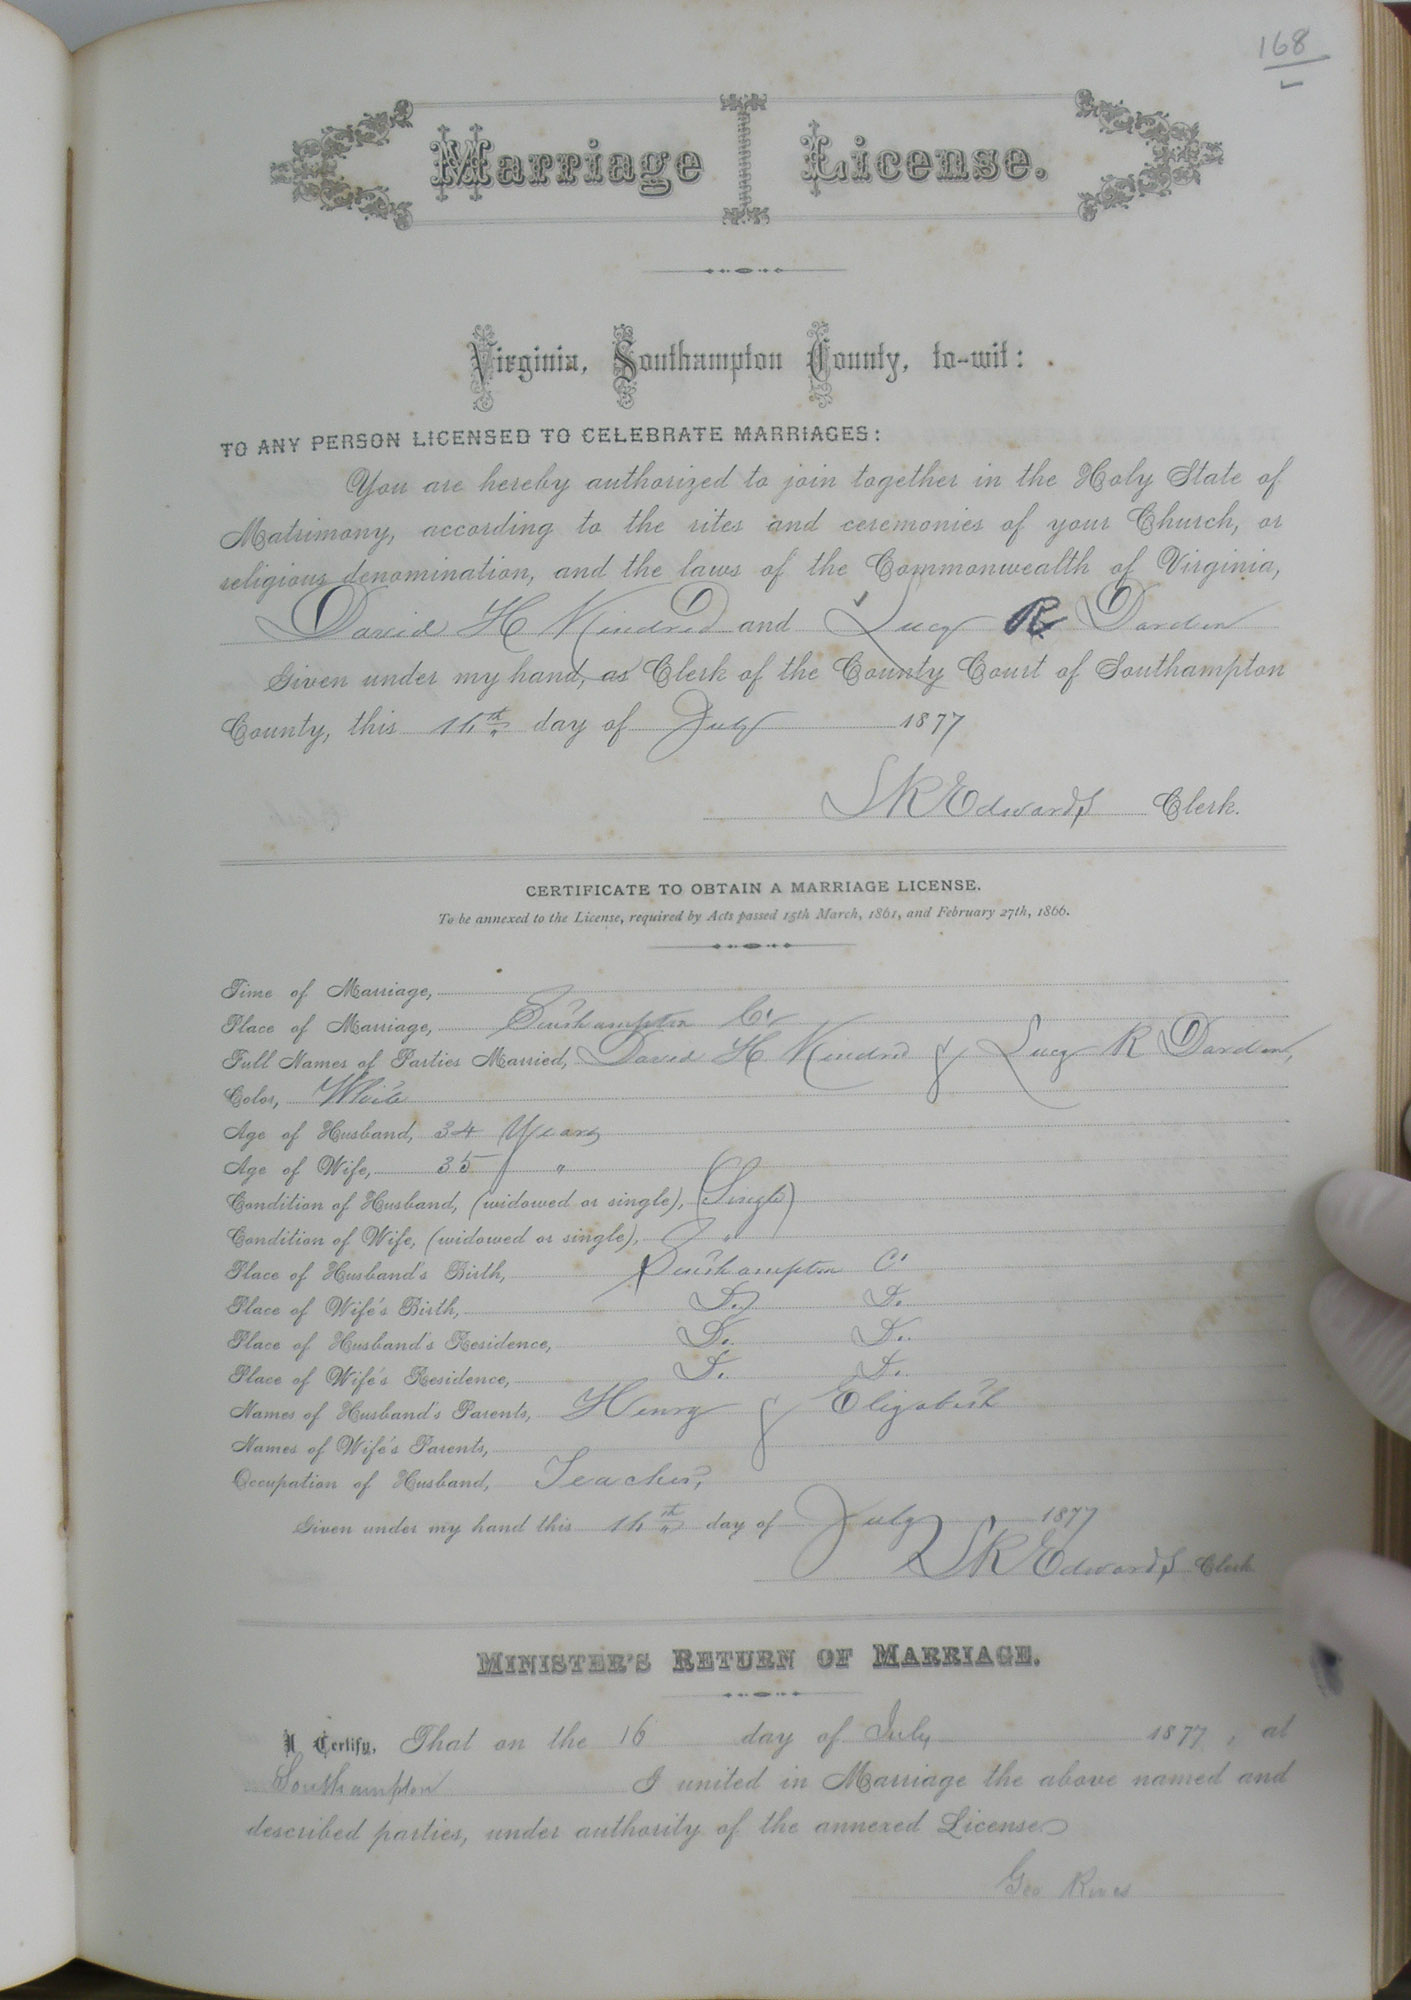 168
Marriage License.
Virginia, Southampton County, to-wit:
TO ANY PERSON LICENSED TO CELEBRATE MARRIAGES:
You are hereby authorized to join together in the Holy State of
Matrimony, according to the rites and ceremonies of your Church, or
religious denomination, and the laws of the Commonwealth of Virginia,
David H Kindred and Lucy R Darden
Given under my hand, as Clerk of the County Court of Southampton
County, this 14th day of July 1877
S K Edwards Clerk.
CERTIFICATE TO OBTAIN A MARRIAGE LICENSE.
To be annexed to the License, required by Acts passed 15th March, 1861, and February 27th, 1866.
Time of Marriage,
Place of Marriage, Southampton Co.
Full Names of Parties Married, David H Kindred & Lucy R Darden,
Color, White
Age of Husband, 34 Years
Age of Wife, 35 "
Condition of Husband, (widowed or single), (Single)
Condition of Wife, (widowed or single), "
Place of Husband's Birth, Southampton C.
Place of Wife's Birth, Do. Do.
Place of Husband's Residence, Do. Do.
Place of Wife's Residence, Do. Do.
Names of Husband's Parents, Henry & Elizabeth
Names of Wife's Parents,
Occupation of Husband, Teacher,
Given under my hand this 14th day of July 1877
S K Edwards Clerk
MINISTER'S RETURN OF MARRIAGE.
I Certify, That on the 16 day of July 1877, at
Southampton I united in Marriage the above named and
described parties, under authority of the annexed License
Geo Rives